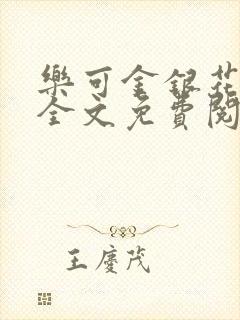 樂可金銀花
全文免費閱
王慶茂